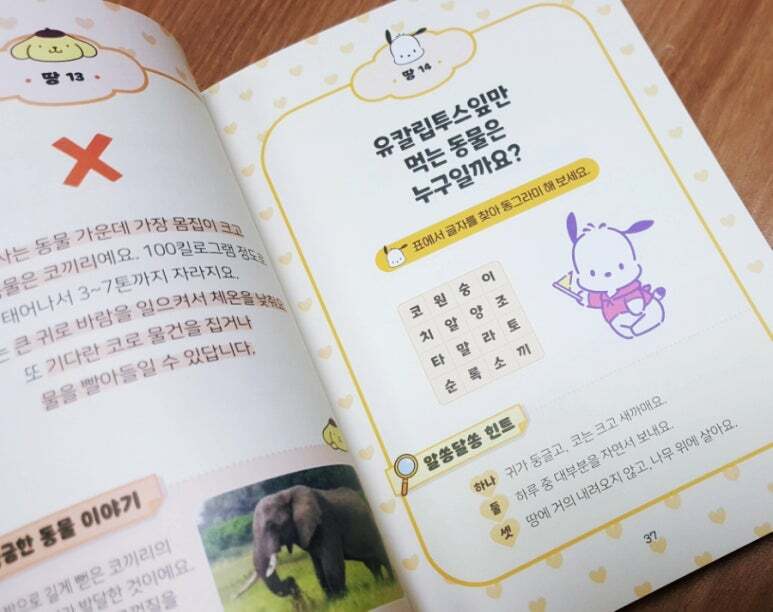 땅 13
사는 동물 가운데 가장 몸집이 크고
동물은 코끼리예요. 100킬로그램 정도로
태어나서 3~7톤까지 자라지요.
큰 귀로 바람을 일으켜서 체온을 낮춰요.
또 기다란 코로 물건을 집거나
물을 빨아들일 수 있답니다.
궁금한 동물 이야기
밖으로 길게 뻗은 코끼리의
발달한 것이에요.
땅 14
유칼립투스잎만
먹는 동물은
누구일까요?
표에서 글자를 찾아 동그라미 해 보세요.
코 원 숭 이
치 알 양 조
타 말 라 토
순 록 소 끼
알쏭달쏭 힌트
하나 귀가 둥글고, 코는 크고 새까매요.
둘 하루 중 대부분을 자면서 보내요.
셋 땅에 거의 내려오지 않고, 나무 위에 살아요.
37